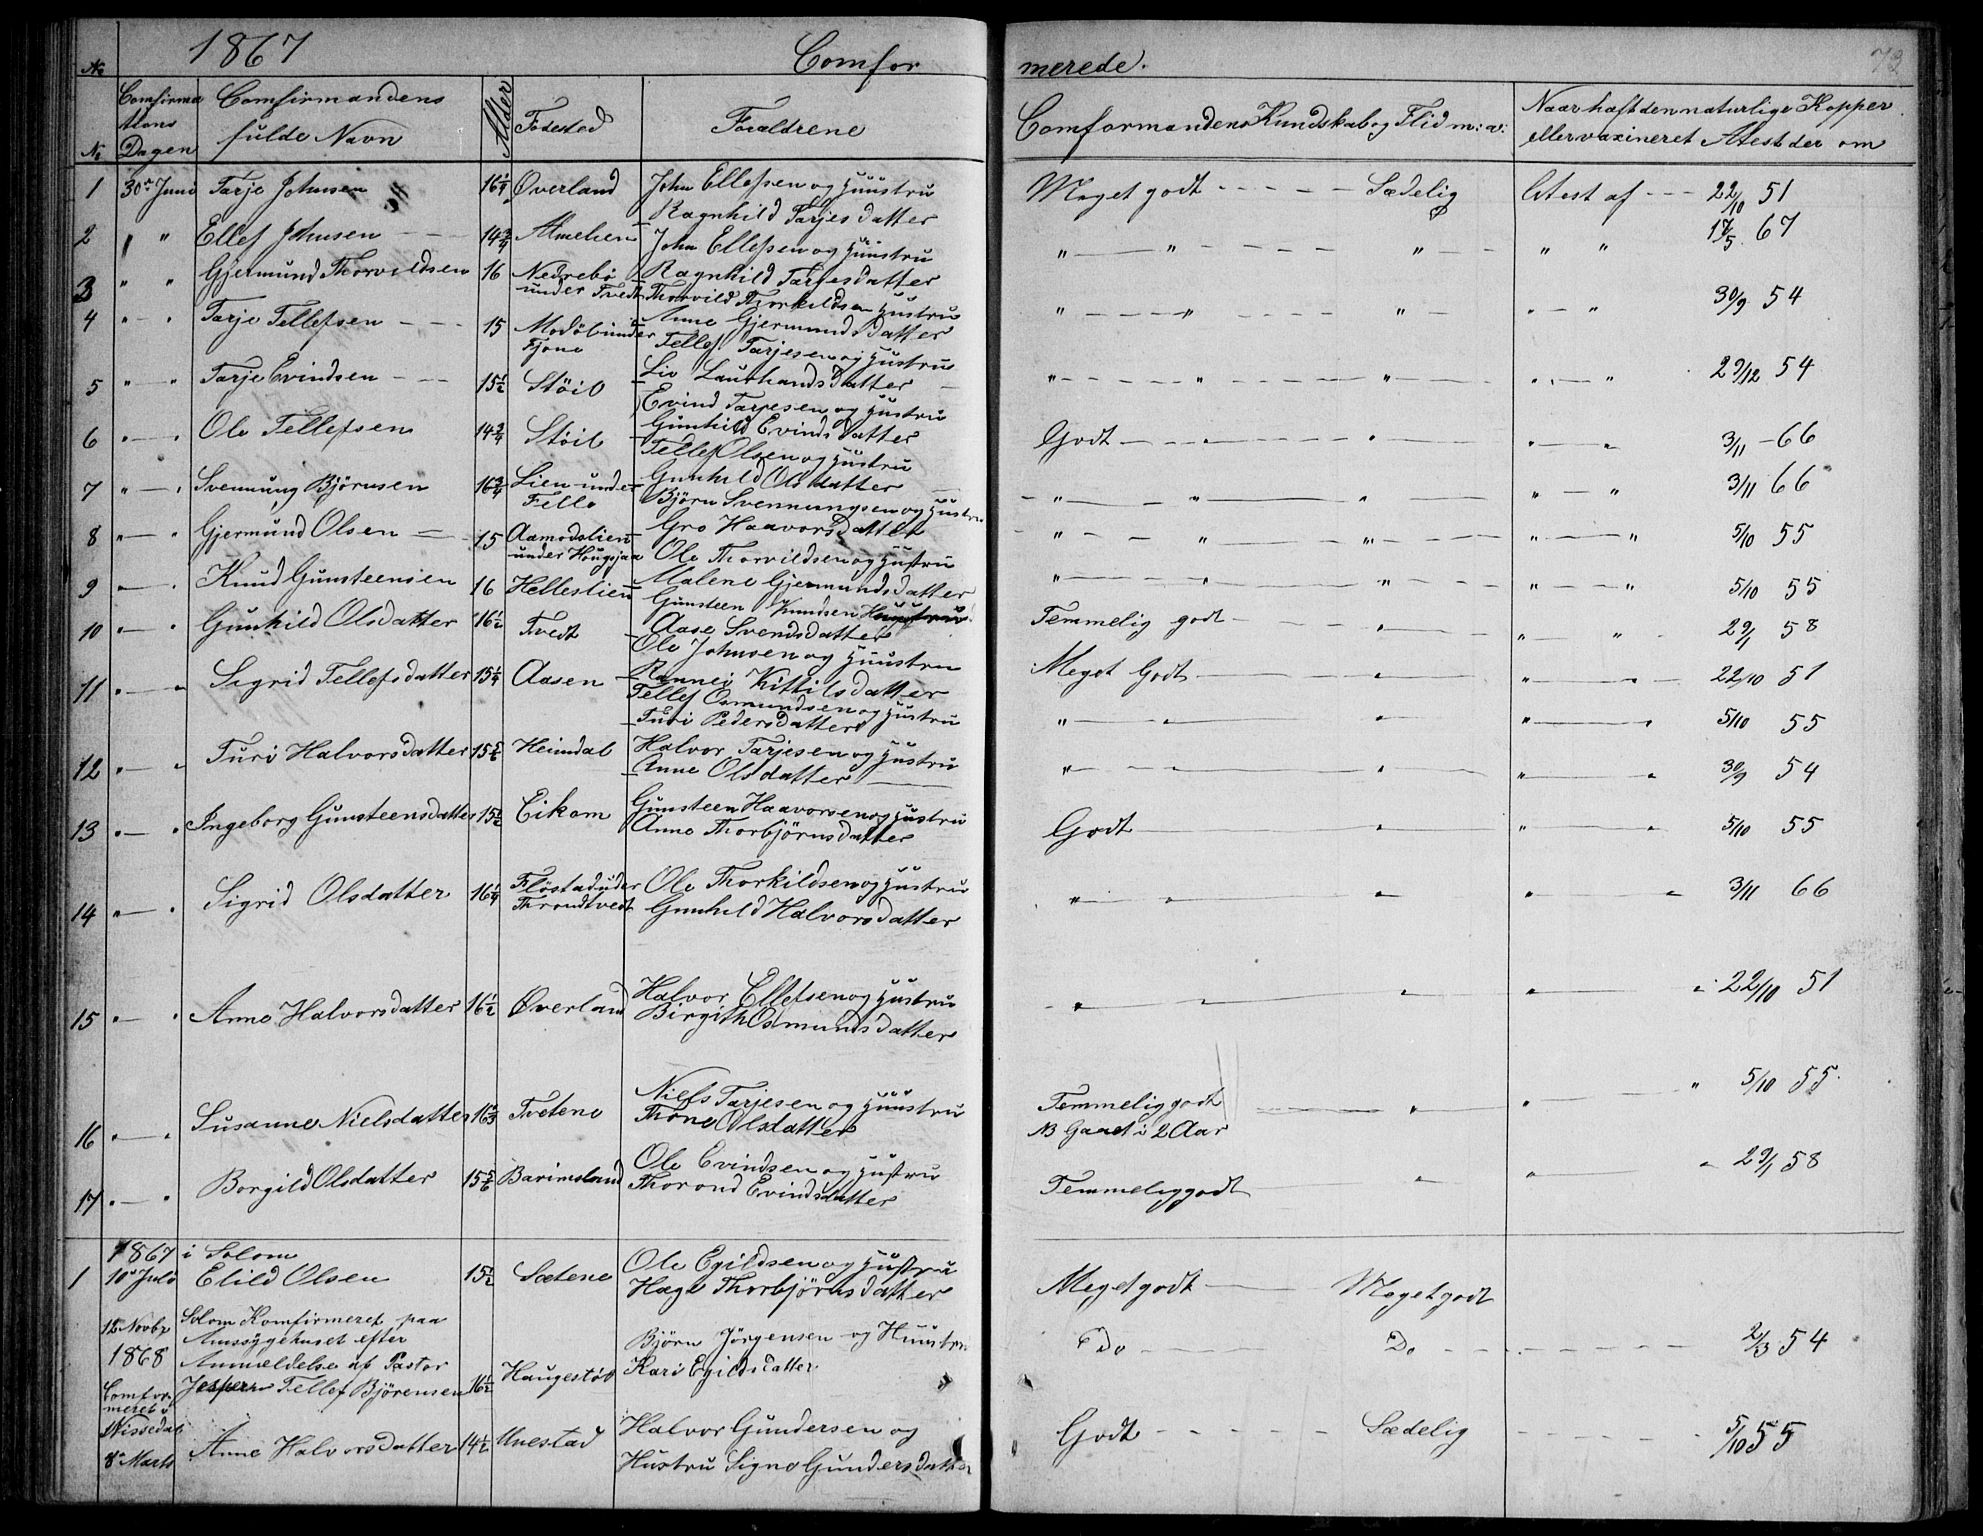 1867 Comfor merede. 73
No Comfirma Comfirmandens Alder Fødested Forældrene Comformandens Kundskab og Flid m: v: Naar haft den naturlige Kopper
tions fulde Navn eller vaxineret Atest der om
No Dagen
1 30te Juni Tarje Johnsen 16 1/4 Øverland John Ellefsen og Hüüstru Meget godt - - - - - Sædelig Atest af - - - 22/10 51
Ragnhild Tarjesdatter
2 " Ellef Johnsen - - - 14 3/4 Almelien John Ellefsen og Hüüstru " — " - - - - - " - - " " 17/5 67
Ragnhild Tarjesdatter
3 " " Gjermund Thorvildsen 16 Nedrebø under Tvedt Thorvild Thorkildsen Hustru " - - - " - - - - " - " - " 30/9 54
Anne Gjermundsdatter
4 " - " Tarje Tellefsen - - - 15 under Fjone Tellef Tarjesen og Hustru " - - - - " - - - - " - - " - - " 29/12 54
Liv Laurhandsdatter
5 " - " Tarje Evindsen - - - 15 1/2 Støil Evind Tarjesen og Hustru
Gunhild Evindsdatter
6 " — " Ole Tellefsen 14 3/4 Støil Tellef Olsen og Hustru Godt - - " — " — " — " 3/11 - 66
Gunhild Olsdatter
7 " — " Svennüng Bjørnsen 16 3/4 Lien under Felle Bjørn Svennungsen og Hustru " — " — " — " — " 3/11 66
Gro Haavorsdatter
8 " — " Gjermund Olsen = 15 Aamodslien under Hougsjaa Ole Thorvildsen og Hustru " - - " - - " - " — " 5/10 55
Malene Gjermundsdatter
9 " — " Knud Gunsteensen 16 Helleslien Gunsteen Knudsen Hustru " - - - " - - " - " - " 5/10 55
Aase Svendsdatter
10 " — " Gunhild Olsdatter 16 1/2 Tvedt Ole Johnsen og Hüüstru Temmelig godt — " — " — " 29/1 58
Rannei Kittilsdatter
11 " — " Sigrid Tellefsdatter 15 1/4 Aasen Tellef Osmundsen og Hustru Meget Godt — " — " — " 22/10 51
Turi Pedersdatter " — " — " — " — " 5/10 55
12 " — " Turi Halvorsdatter Heimdal Halvor Tarjesen og Hustru " — " — " — " 30/9 54
Anne Olsdatter
13 " — " Ingeborg Gunsteensdatter 15 1/2 Eikom Gunsteen Haavorsen og Hustru Godt — " — " — " 5/10 55
Anne Thorbjørnsdatter
14 " — " Sigrid Olsdatter 16 1/4 Fløstad under Throndtvedt Ole Thorkildsen og Hustru " — " — " — " — " 3/11 66
Gunhild Halvorsdatter
15 " — " Anne Halvorsdatter 16 1/2 Øverland Halvor Ellefsen og Hustru " — " — " — " — " 22/10 51
Birgith Osmundsdatter
16 " — " Susanne Nielsdatter Tvetene Niels Tarjesen og Hüüstru Temmelig godt — " — " " 5/10 55.
Thone Olsdatter NB Gaaet i 2 Aar
17 " — " Borgild Olsdatter 15 5/6 Barimsland Ole Evindsen og Hustru Temmelig godt — " — " — " 29/1 58
Thorond Evindsdatter
1867 i Solom
1 10de Juli Elild Olsen 15 1/2 Sætene Ole Egildsen og Hustru Meget godt — Meget godt
Hæge Thorbjørnsdatter
12 Novbr Solom Komfirmeret paa
1868 Amssygehuset efter
Anmeldelse af Pastor Bjørn Jörgensen og Hüüstru Do — Do - - - - - 2/3 54
Jespersen Tellef Björensen 16 1/2 Haugestøl Kari Egilds datter
Comfor-
meret i
Nissedal
8de Marts Anne Halvorsdatter 14 1/2 Unestad Halvor Gundersen og Godt - - - - - Sædelig - - - - 5/10 55
Hustru Signe Gundersdatter